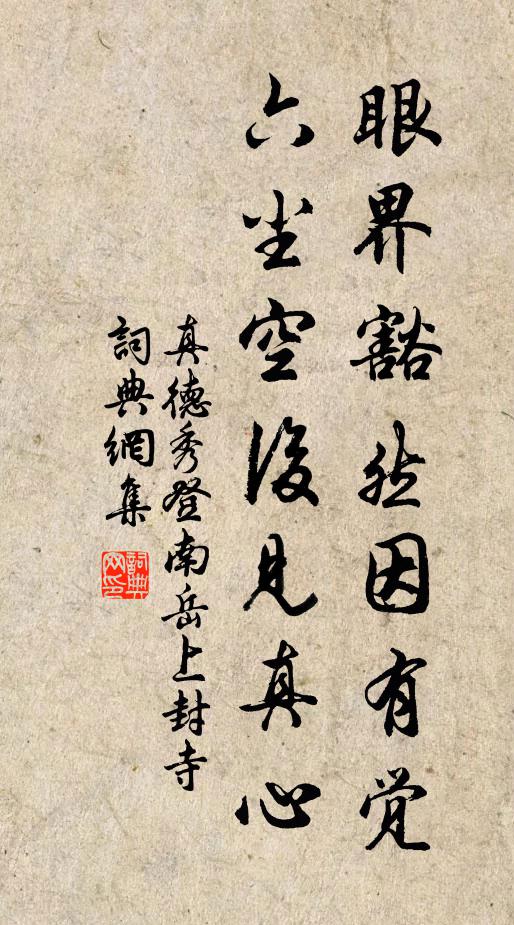 眼界豁然因有觉
六尘空後見真心
真德秀登南岳上封寺
詞典網集
詞典网印